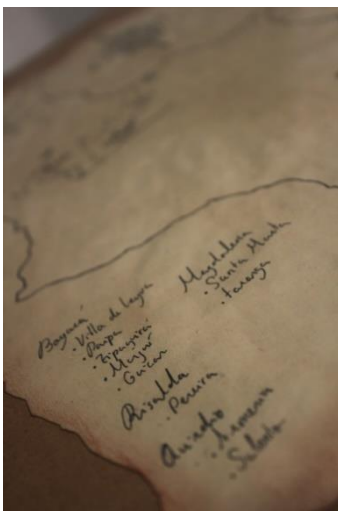 Boyacá
· Villa de Leyva
· Paipa
· Zipaquirá
· Monguí
· Guican
Magdalena
· Santa Marta
· Taranga
Risaralda
· Pereira
Quindio
· Armenia
· Salento